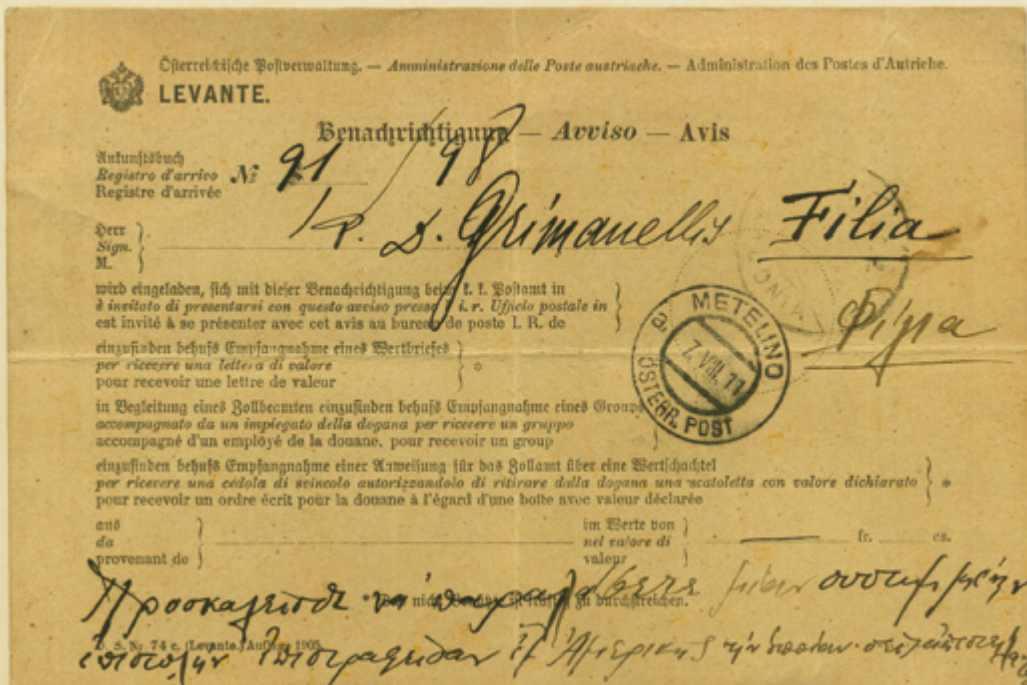 Österreichische Postverwaltung. — Amministrazione delle Poste austriache. — Administration des Postes d'Autriche.
LEVANTE.
Benachrichtigung — Avviso — Avis
Ankunftsbuch
Registro d'arrivo № 91/98
Registre d'arrivée
Herr
Sign.
M.
D. Grimanellis Filia
Φίλια
wird eingeladen, sich mit dieser Benachrichtigung beim k. k. Postamt in
è invitato di presentarsi con questo avviso presso l'i. r. Ufficio postale in
est invité à se présenter avec cet avis au bureau de poste I. R. de
METELINO
7. VIII. 11
ÖSTERR. POST
einzufinden behufs Empfangnahme eines Wertbriefes
per ricevere una lettera di valore *
pour recevoir une lettre de valeur
in Begleitung eines Zollbeamten einzufinden behufs Empfangnahme eines Groups
accompagnato da un impiegato della dogana per ricevere un gruppo
accompagné d'un employé de la douane, pour recevoir un group
einzufinden behufs Empfangnahme einer Anweisung für das Zollamt über eine Wertschachtel
per ricevere una cedola di svincolo autorizzandolo di ritirare dalla dogana una scatoletta con valore dichiarato *
pour recevoir un ordre écrit pour la douane à l'égard d'une boîte avec valeur déclarée
aus
da
provenant de
im Werte von
nel valore di fr. cs.
valeur
Προσκαλεῖσθε νὰ
zu durchstreichen.
D. S. Nr. 74 c. (Levante.) Auflage 1905.
ἐπιστολὴν ἐπιστραφεῖσαν ἐξ Ἀμερικῆς τὴν ὁποίαν